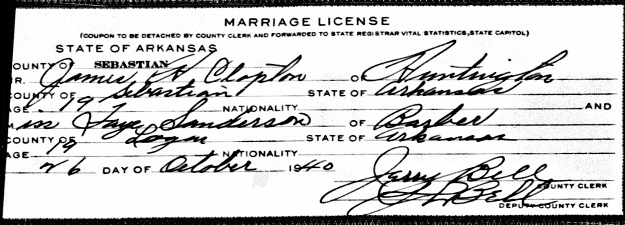 MARRIAGE LICENSE
(COUPON TO BE DETACHED BY COUNTY CLERK AND FORWARDED TO STATE REGISTRAR VITAL STATISTICS, STATE CAPITOL)
STATE OF ARKANSAS
COUNTY OF SEBASTIAN
MR. James H Clopton OF Huntington
COUNTY OF Sebastian STATE OF Arkansas
AGE 19 NATIONALITY AND
Miss Faye Sanderson OF Barber
COUNTY OF Logan STATE OF Arkansas
AGE 19 NATIONALITY
26 DAY OF October 1940
Jarry Bell COUNTY CLERK
Bell DEPUTY COUNTY CLERK